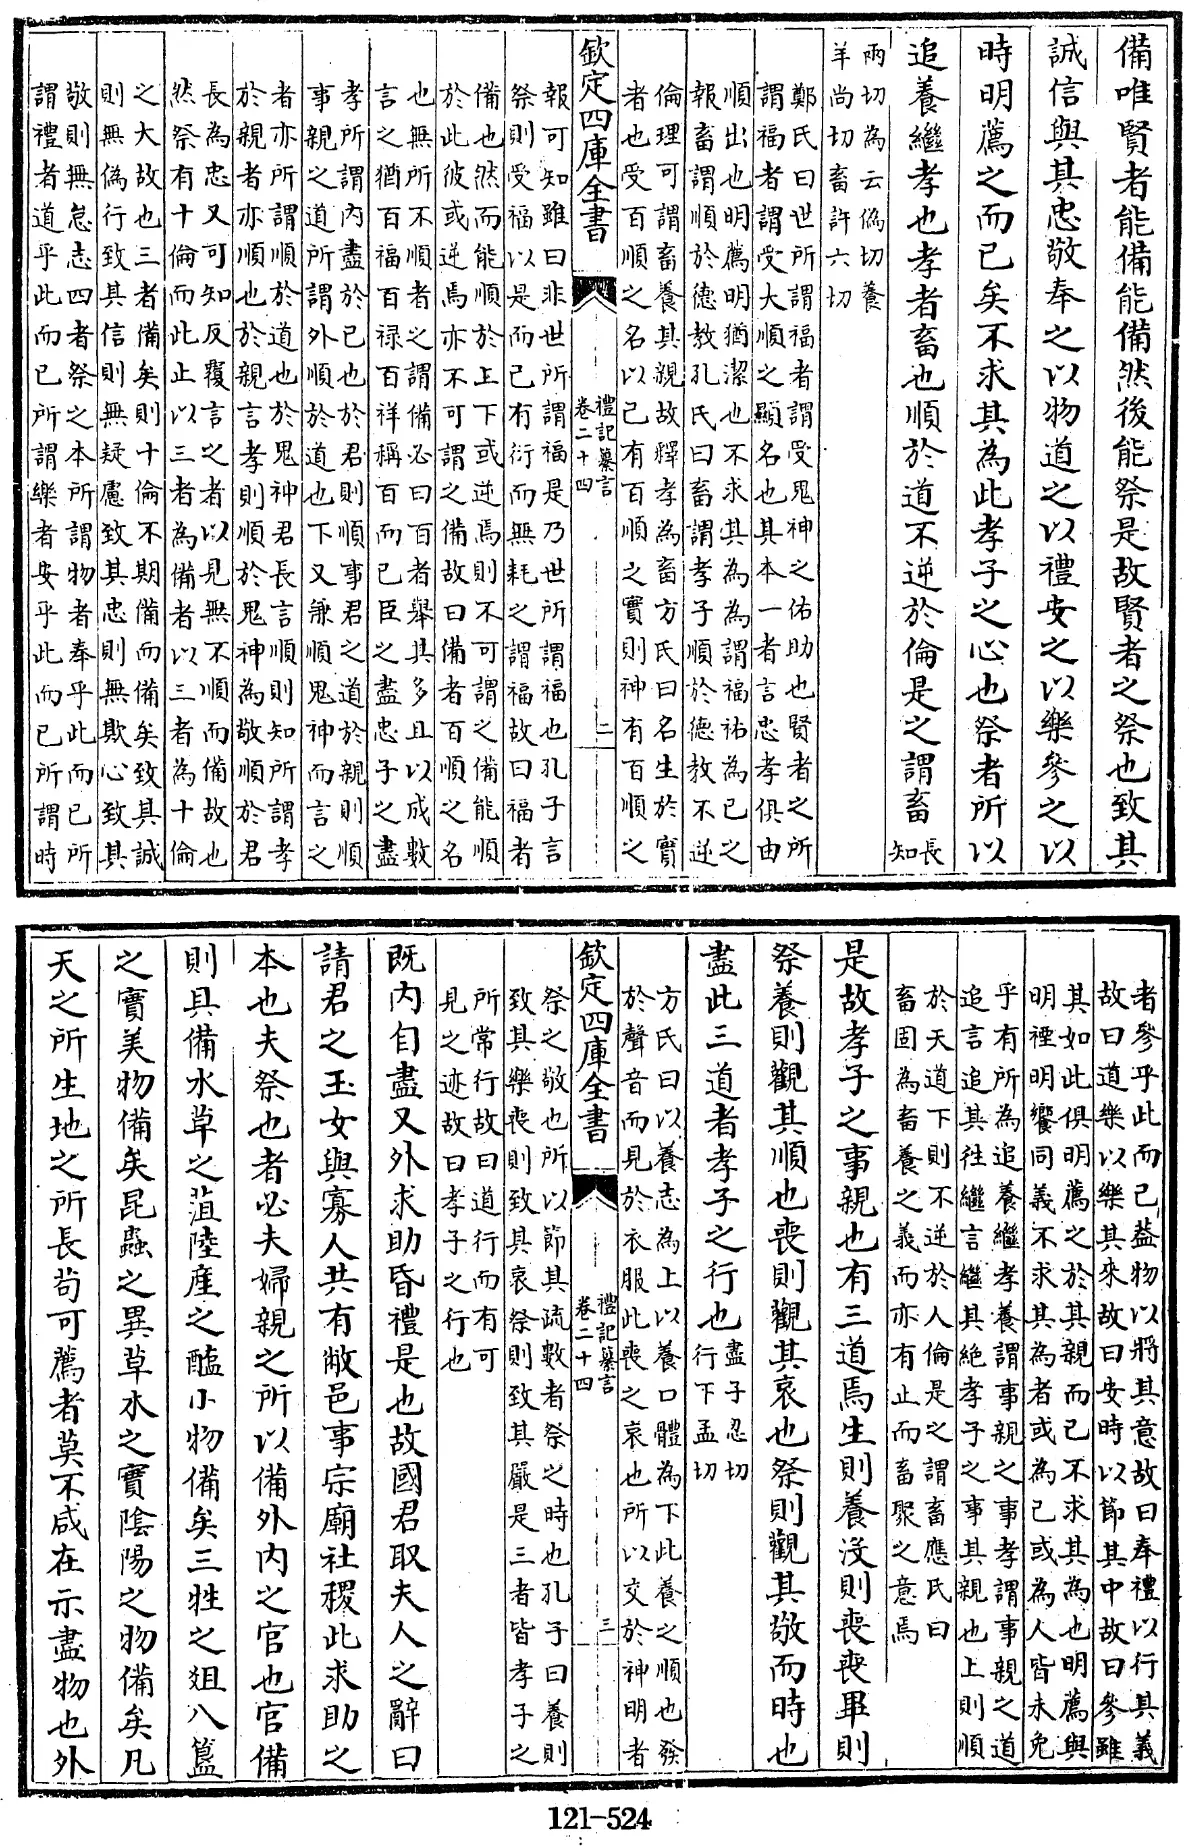 備唯賢者能備能備然後能祭是故賢者之祭也致其
誠信與其忠敬奉之以物道之以禮安之以樂參之以
時明薦之而已矣不求其為此孝子之心也祭者所以
追養繼孝也孝者畜也順於道不逆於倫是之謂畜長
知
兩切為云偽切養
羊尚切畜許六切
鄭氏曰世所謂福者謂受鬼神之佑助也賢者之所
謂福者謂受大順之顯名也其本一者言忠孝俱由
順出也明薦明猶潔也不求其為為謂福祐為已之
報畜謂順於德教孔氏曰畜謂孝子順於德教不逆
倫理可謂畜養其親故釋孝為畜方氏曰名生於實
者也受百順之名以已有百順之實則神有百順之
欽定四庫全書
禮記纂言
卷二十四
二
報可知雖曰非世所謂福是乃世所謂福也孔子言
祭則受福以是而已有衍而無耗之謂福故曰福者
備也然而能順於上下或逆焉則不可謂之備能順
於此彼或逆焉亦不可謂之備故曰備者百順之名
也無所不順者之謂備必曰百者舉其多且以成數
言之猶百福百禄百祥稱百而已臣之盡忠子之盡
孝所謂內盡於已也於君則順事君之道於親則順
事親之道所謂外順於道也下又兼順鬼神而言之
者亦所謂順於道也於鬼神君長言順則知所謂孝
於親者亦順也於親言孝則順於鬼神為敬順於君
長為忠又可知反覆言之者以見無不順而備故也
然祭有十倫而此止以三者為備者以三者為十倫
之大故也三者備矣則十倫不期備而備矣致其誠
則無偽行致其信則無疑慮致其忠則無欺心致其
敬則無怠志四者祭之本所謂物者奉乎此而已所
謂禮者道乎此而已所謂樂者安乎此而已所謂時
者參乎此而已葢物以將其意故曰奉禮以行其義
故曰道樂以樂其來故曰安時以節其中故曰參雖
其如此俱明薦之於其親而已不求其為也明薦與
明禋明饗同義不求其為者或為已或為人皆未免
乎有所為追養繼孝養謂事親之事孝謂事親之道
追言追其往繼言繼其絶孝子之事其親也上則順
於天道下則不逆於人倫是之謂畜應氏曰
畜固為畜養之義而亦有止而畜聚之意焉
是故孝子之事親也有三道焉生則養没則喪喪畢則
祭養則觀其順也喪則觀其哀也祭則觀其敬而時也
盡此三道者孝子之行也盡子忍切
行下孟切
方氏曰以養志為上以養口體為下此養之順也發
於聲音而見於衣服此喪之哀也所以交於神明者
欽定四庫全書
禮記纂言
卷二十四
三
祭之敬也所以節其疏數者祭之時也孔子曰養則
致其樂喪則致其哀祭則致其嚴是三者皆孝子之
所常行故曰道行而有可
見之迹故曰孝子之行也
既內自盡又外求助昏禮是也故國君取夫人之辭曰
請君之玉女與寡人共有敝邑事宗廟社稷此求助之
本也夫祭也者必夫婦親之所以備外內之官也官備
則具備水草之菹陸產之醢小物備矣三牲之俎八簋
之實美物備矣昆蟲之異草木之實陰陽之物備矣凡
天之所生地之所長苟可薦者莫不咸在示盡物也外
121-524